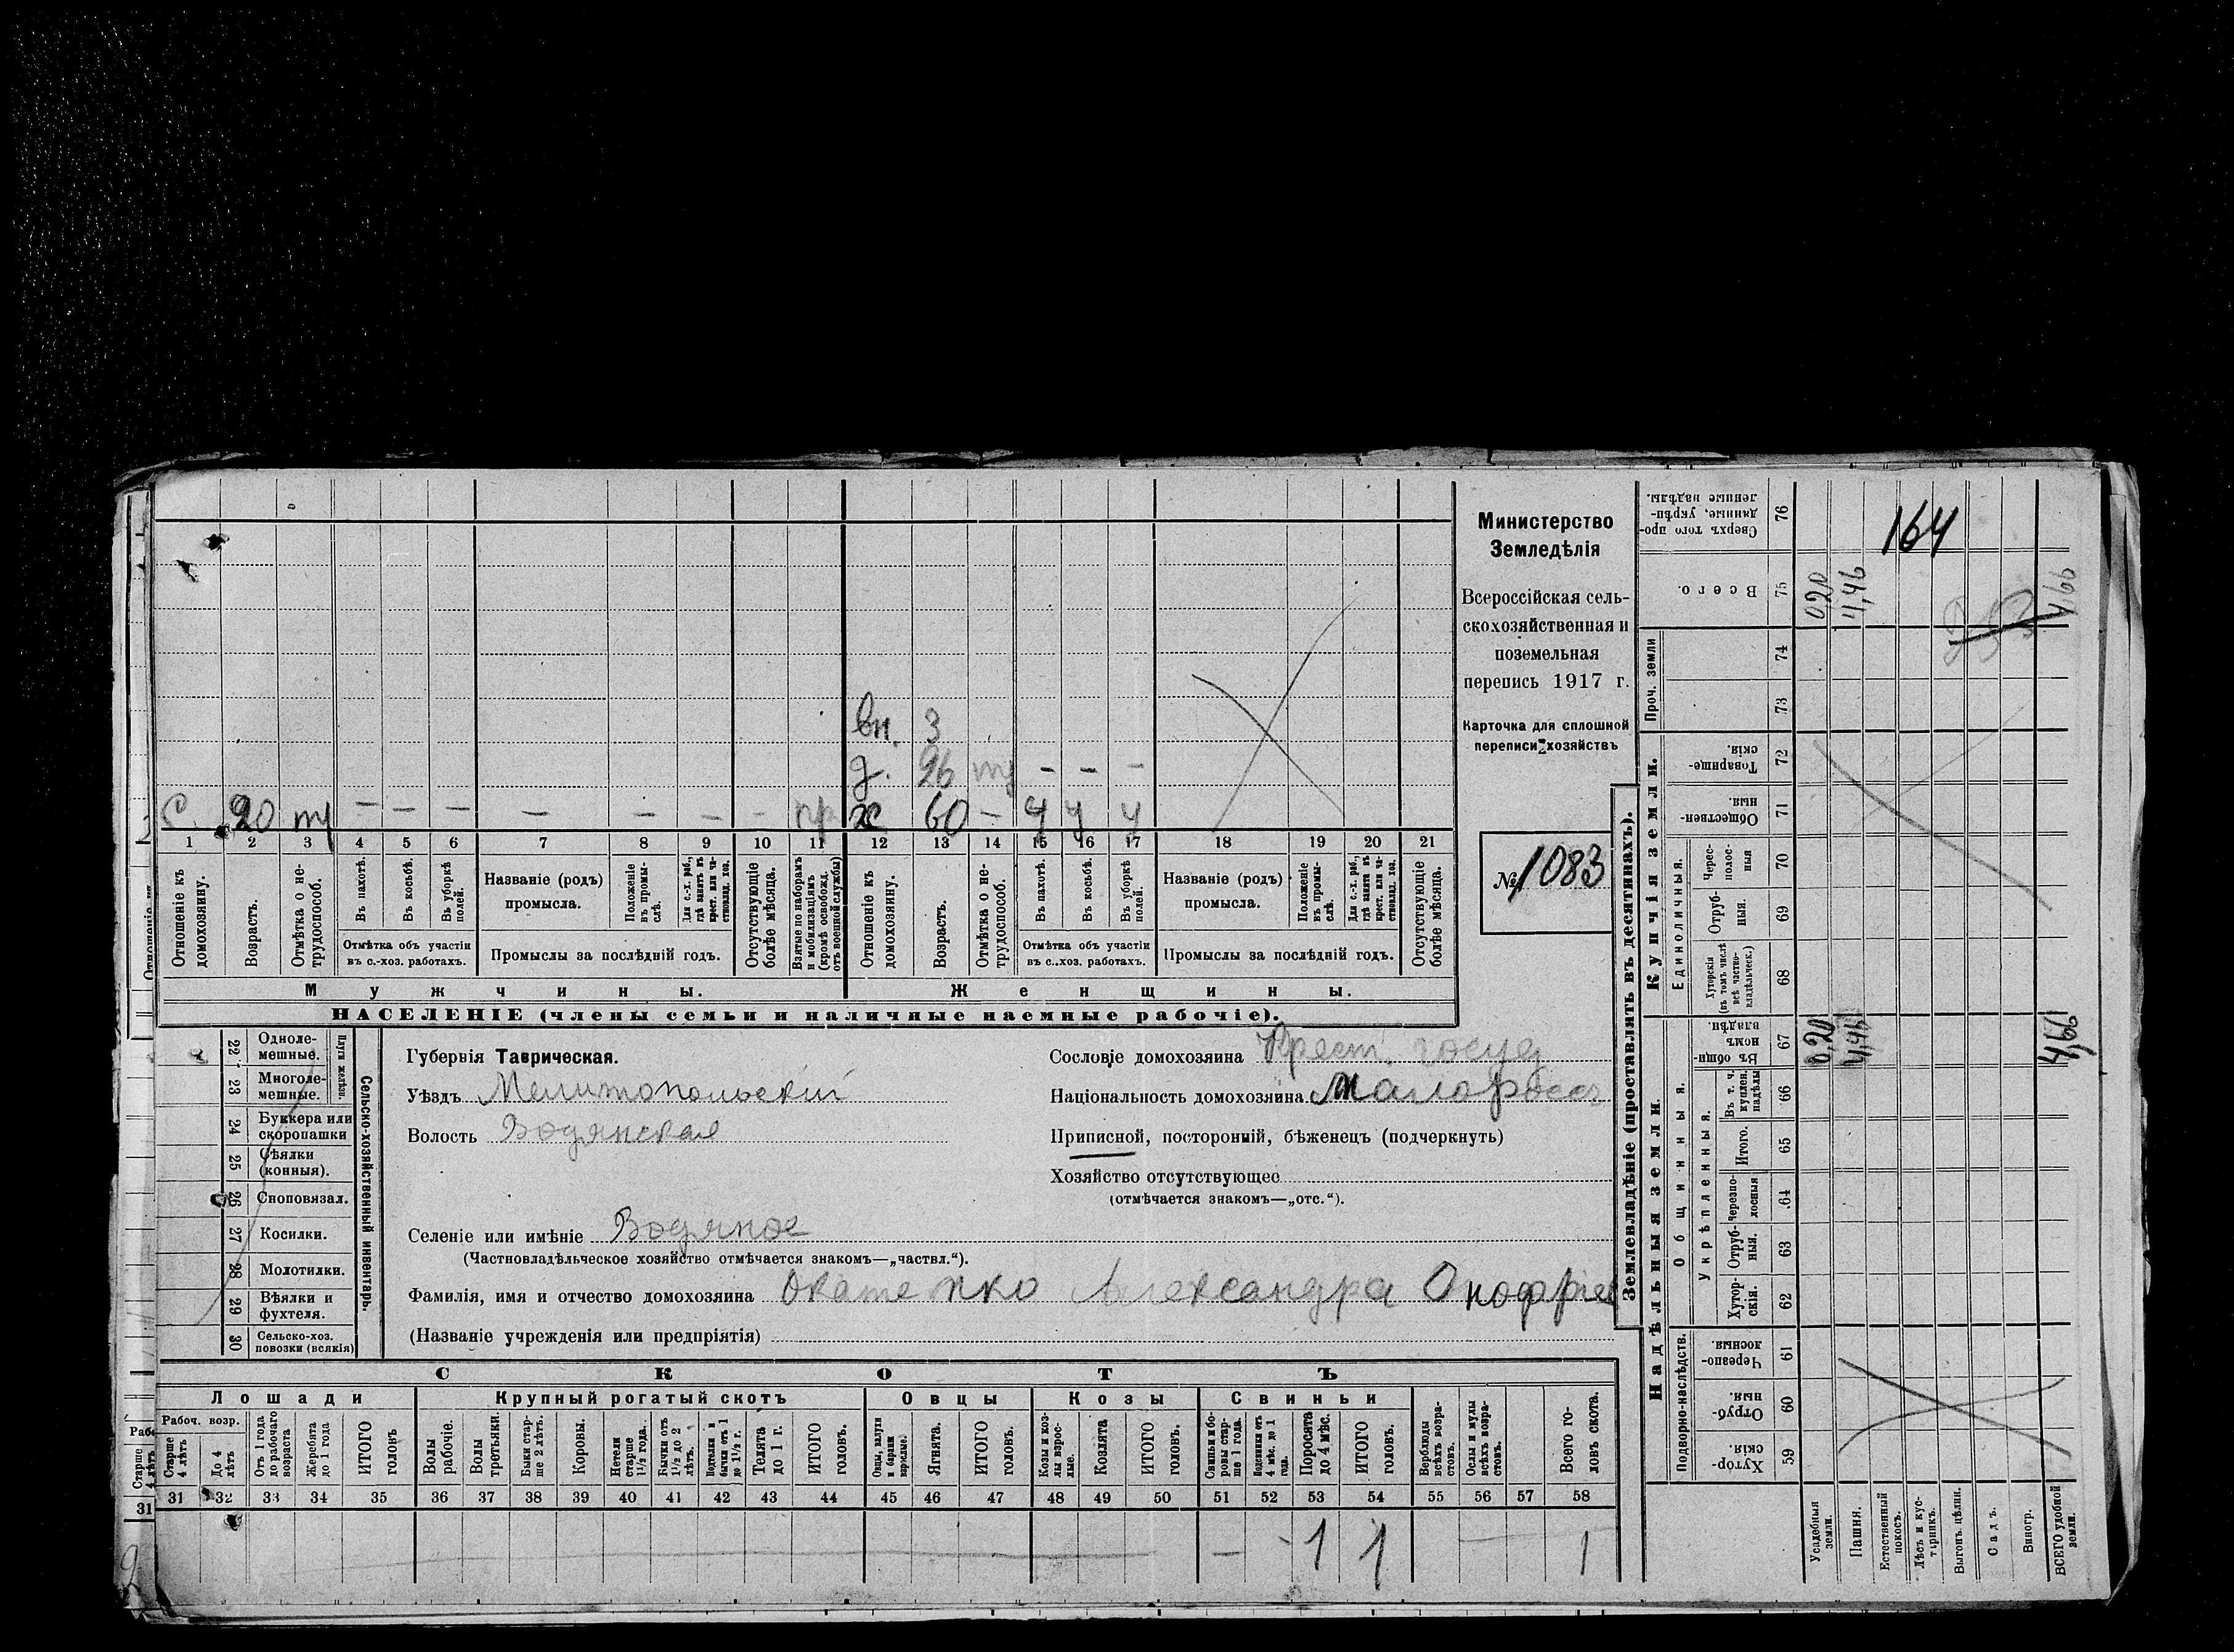 Министерство
Земледѣлія
Всероссійская сель-
скохозяйственная и
поземельная
перепись 1917 г.
Карточка для сплошной
переписи хозяйствъ
№ 1083
вн. 3
д. 26 тр - - -
С. 20 тр - - - - - - - пр ж 60 - у у у
1 2 3 4 5 6 7 8 9 10 11 12 13 14 15 16 17 18 19 20 21
Отношеніе къ домохозяину.
Возрастъ.
Отмѣтка о не-трудоспособ.
Въ пахотѣ.
Въ косьбѣ.
Въ уборкѣ полей.
Отмѣтка объ участіи
въ с.-хоз. работахъ.
Названіе (родъ)
промысла.
Положеніе въ промы-слѣ.
Для с.-х. раб., гдѣ занятъ въ крест. или ча-стновлад. хоз.
Промыслы за послѣдній годъ.
Отсутствующіе болѣе мѣсяца.
Взятые по наборамъ и мобилизаціямъ (кромѣ освобожд. отъ военной службы)
Отношеніе къ домохозяину.
Возрастъ.
Отмѣтка о не-трудоспособ.
Въ пахотѣ.
Въ косьбѣ.
Въ уборкѣ полей.
Отмѣтка объ участіи
въ с.-хоз. работахъ.
Названіе (родъ)
промысла.
Положеніе въ промы-слѣ.
Для с.-х. раб., гдѣ занята въ крест. или ча-стновлад. хоз.
Промыслы за послѣдній годъ.
Отсутствующіе болѣе мѣсяца.
Мужчины. Женщины.
НАСЕЛЕНІЕ (члены семьи и наличные наемные рабочіе).
22 Одноле-мешные.
23 Многоле-мешные.
Плуги желѣзн.
24 Буккера или скоропашки
25 Сѣялки (конныя).
26 Сноповязал.
27 Косилки.
28 Молотилки.
29 Вѣялки и фухтеля.
30 Сельско-хоз. повозки (всякія)
Сельско-хозяйственный инвентарь.
Губернія Таврическая.
Уѣздъ Мелитопольскій
Волость Водянская
Селеніе или имѣніе Водяное
(Частновладѣльческое хозяйство отмѣчается знакомъ—„частвл.“).
Сословіе домохозяина Крест. госуд
Національность домохозяина Малоросс
Приписной, посторонній, бѣженецъ (подчеркнуть)
Хозяйство отсутствующее
(отмѣчается знакомъ—„отс.“).
Фамилія, имя и отчество домохозяина Александра Оноффріев
(Названіе учрежденія или предпріятія)
СКОТЪ
Лошади Крупный рогатый скотъ Овцы Козы Свиньи
Рабоч. возр.
Старше 4 лѣтъ
До 4 лѣтъ
Отъ 1 года до рабочаго возраста
Жеребята до 1 года
ИТОГО головъ
Волы рабочіе.
Волы третьяки.
Быки стар-ше 2 лѣтъ.
Коровы.
Нетели старше 1½ года.
Бычки отъ 1½ до 2 лѣтъ.
Подтелки и бычки отъ 1 до 1½ г.
Телята до 1 г.
ИТОГО головъ.
Овцы, валухи и бараны взрослые.
Ягнята.
ИТОГО головъ.
Козы и коз-лы взрос-лые.
Козлята
ИТОГО головъ.
Свиньи и бо-ровы стар-ше 1 года.
Подсвинки отъ 4 мѣс. до 1 года.
Поросята до 4 мѣс.
ИТОГО головъ.
Верблюды всѣхъ возра-стовъ.
Ослы и мулы всѣхъ возра-стовъ.
Всего го-ловъ скота.
31 32 33 34 35 36 37 38 39 40 41 42 43 44 45 46 47 48 49 50 51 52 53 54 55 56 57 58
— 1 1 — 1
Землевладѣніе (проставлять въ десятинахъ).
Надѣльныя земли. Купчія земли. Проч. земли
Подворно-наслѣдств. Общинныя. Единоличныя.
Укрѣпленныя.
Хутор-скія. 59
Отруб-ныя. 60
Черезпо-лосныя 61
Хутор-скія. 62
Отруб-ныя. 63
Черезпо-лосныя 64
Итого. 65
Въ т. ч. куплен. надѣлы 66
Въ общин-номъ владѣн. 67
Хуторскія (въ томъ числѣ всѣ частно-владѣльческ.) 68
Отруб-ныя. 69
Черес-полос-ныя 70
Обществен-ныя. 71
Товарище-скія. 72
73
74
Всего. 75
Сверхъ того про-данные, укрѣп-ленные надѣлы. 76
Усадебныя земли. 0,20 0,20
Пашня. 4,46 4,46
Естественный покосъ.
Лѣсъ и кус-тарникъ.
Выгонъ, цѣлин.
Садъ.
Виногр.
ВСЕГО удобной земли. 4,66 4,66
164